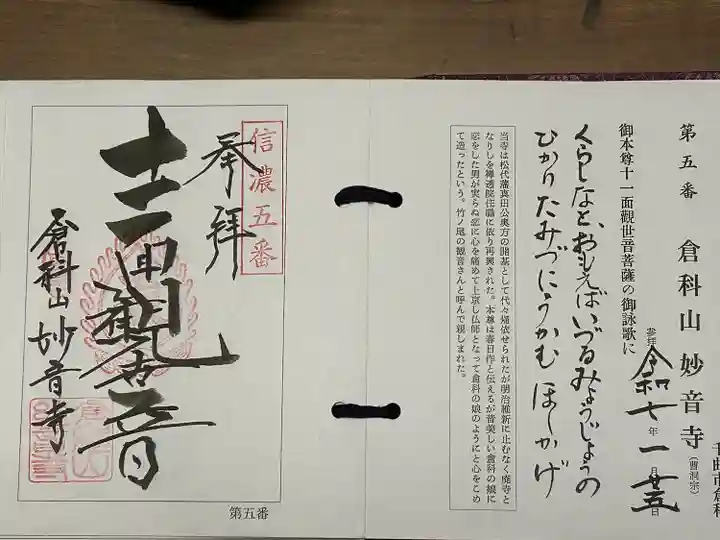 千曲市倉科
第五番 倉科山 妙音寺 (曹洞宗)
参拝 令和七年一月廿五日
御本尊十一面觀世音菩薩の御詠歌に
くらしなと、おもえばいづるみょうじょうの
ひかりたみづにうかむ ほしかげ
当寺は松代藩真田公奥方の開基として代々帰依せられたが明治維新に止むなく廃寺と
なりしを禅透院住職に依り再興された。本尊は春日作と伝えるが昔美しい倉科の娘に
恋をした男が実らぬ恋に心を痛めて上京し仏師となって倉科の娘のようにと心をこめ
て造ったという。竹ノ尾の観音さんと呼んで親しまれた。
信濃五番
奉拝
十一面観世音
倉科山 妙音寺
第五番